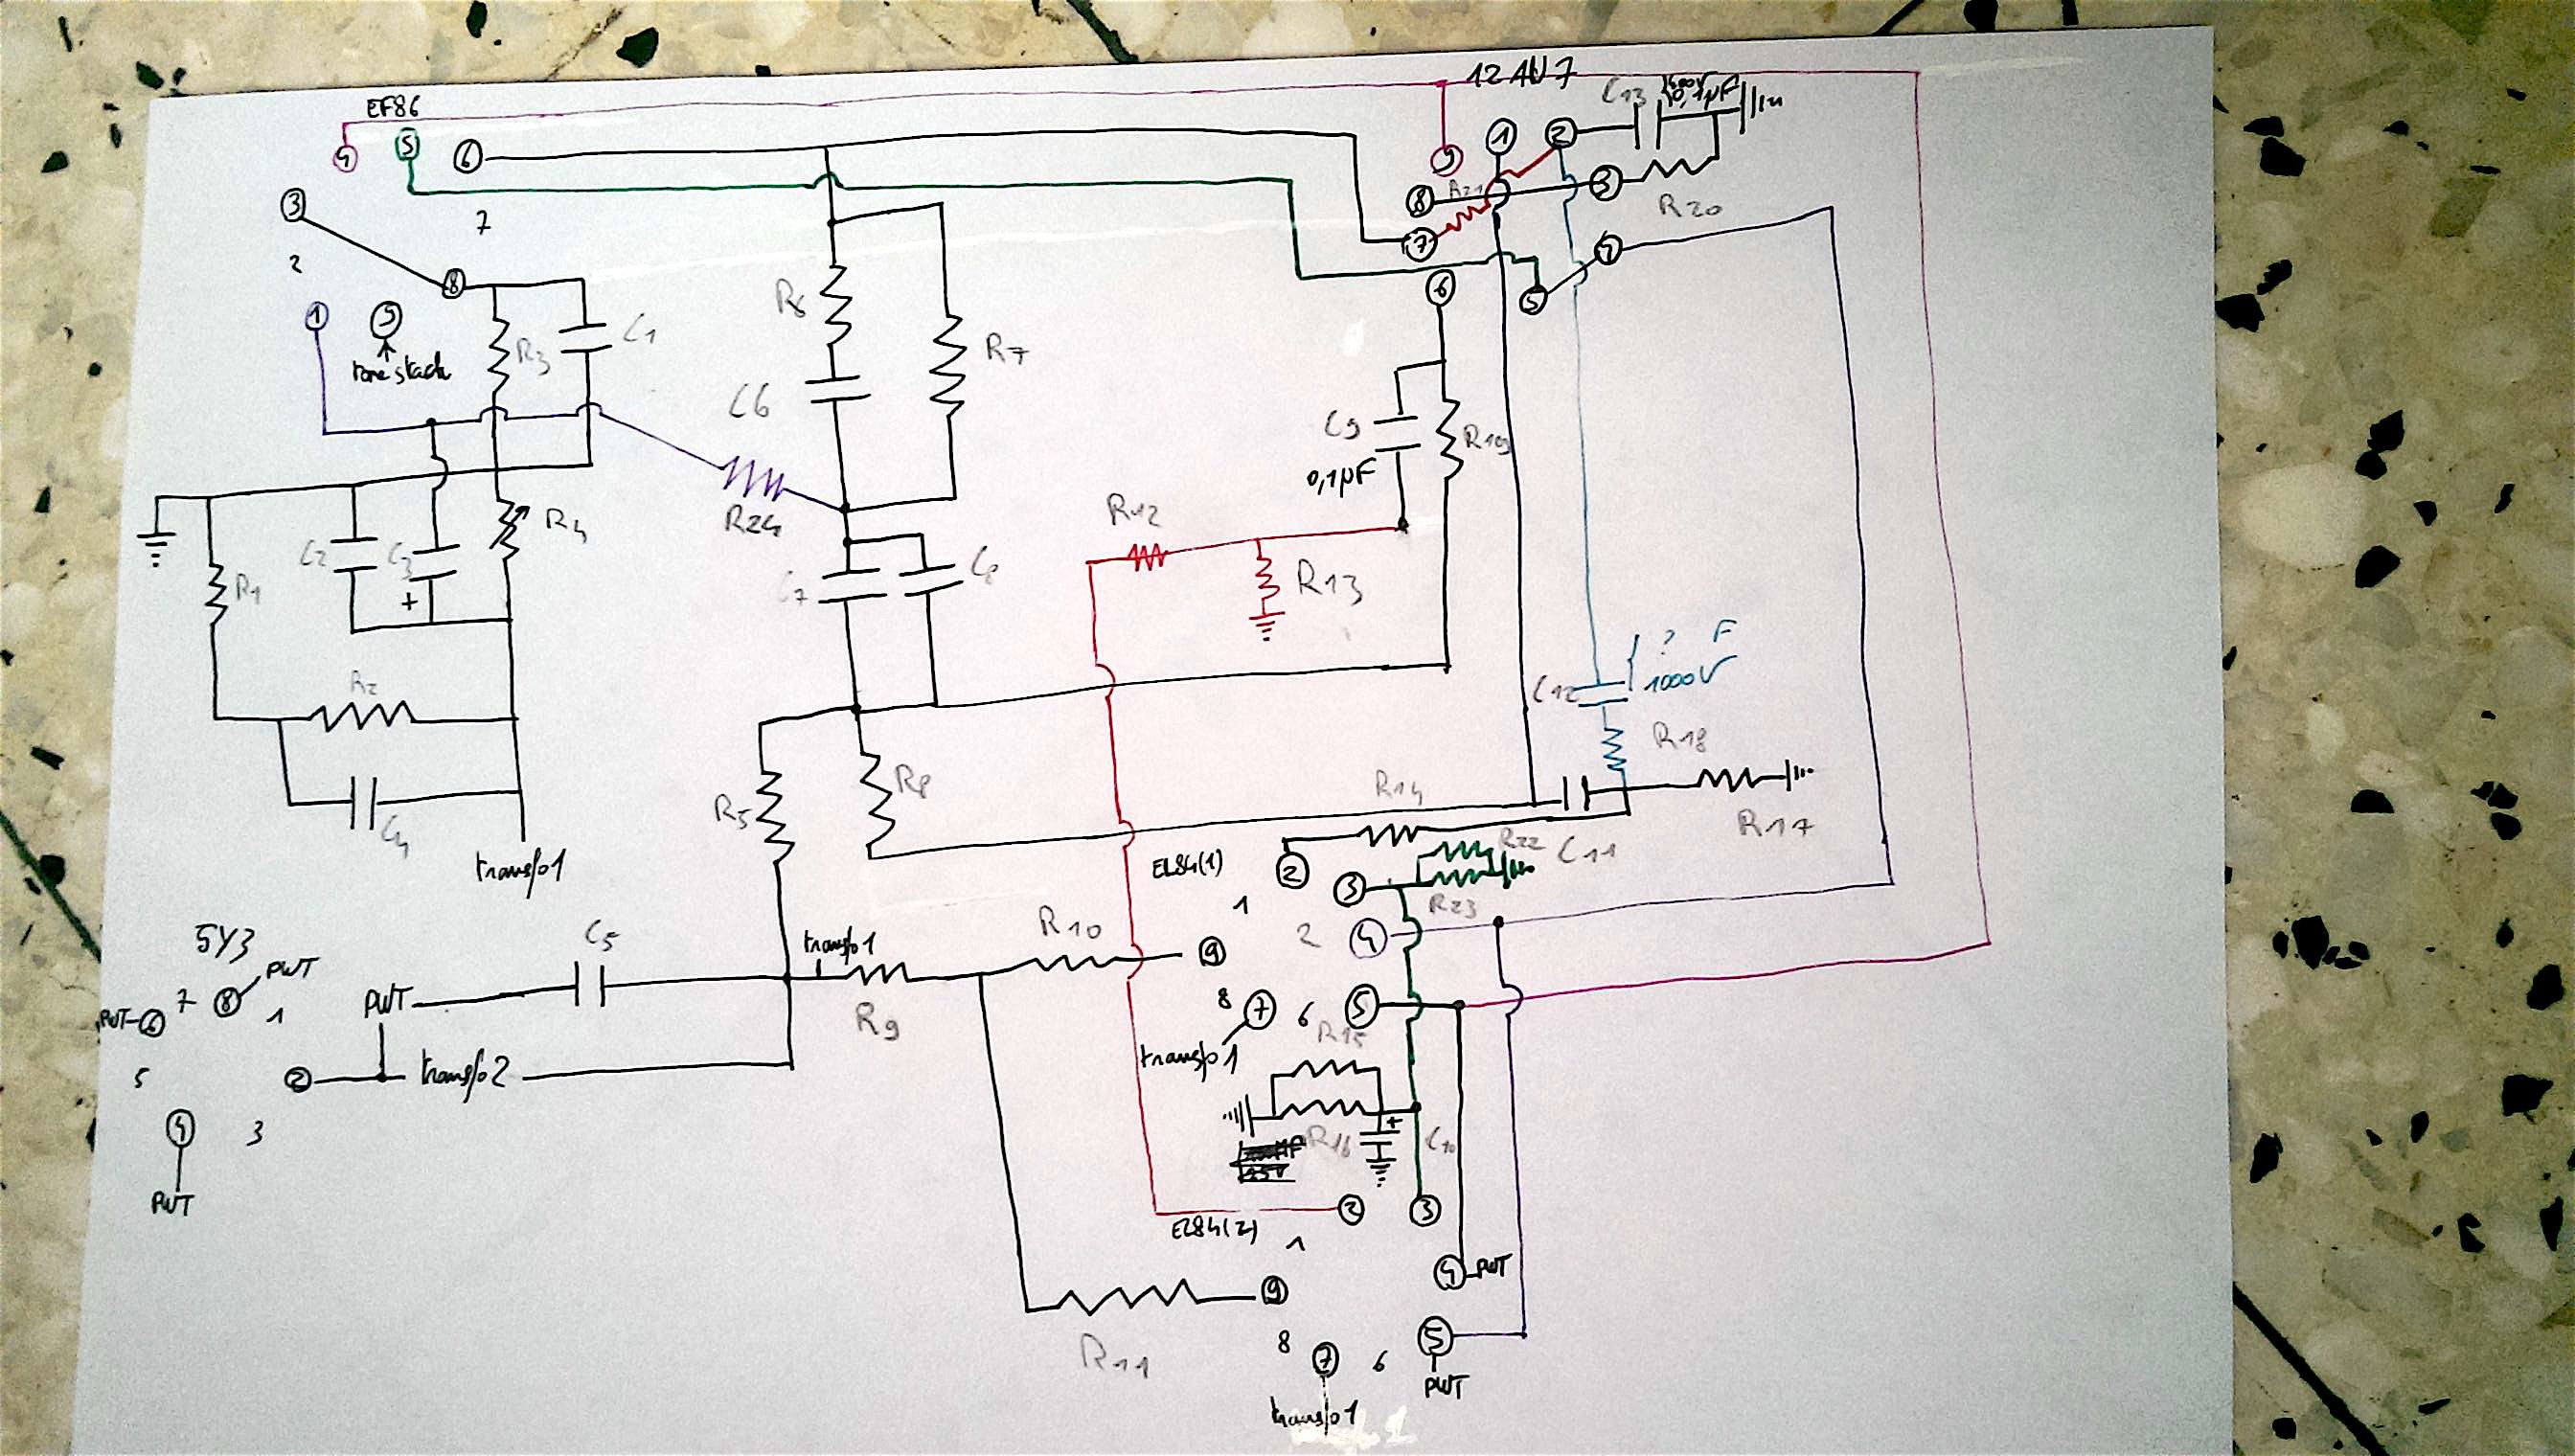 EF86
12AU7
C13
0,1µF
4
5
6
9
1
2
3
8
R21
8
3
R20
7
7
4
2
8
6
5
1
9
tone stack
R3
C1
R6
R7
C6
C9
0,1µF
R19
R24
R4
R12
R13
C2
C3
+
R1
C7
C8
R2
C12
? F
1000V
R18
R5
R8
R14
R17
C4
transfo1
EL84(1)
2
R22
C11
3
R23
1
2
4
5Y3
C5
transfo1
R10
9
PWT
7
8
1
PWT
6
PWT
R9
8
7
6
5
R15
transfo1
5
2
transfo2
4
3
R16
+
C10
PWT
EL84(2)
2
3
1
4
PWT
9
R11
8
7
6
5
PWT
transfo1